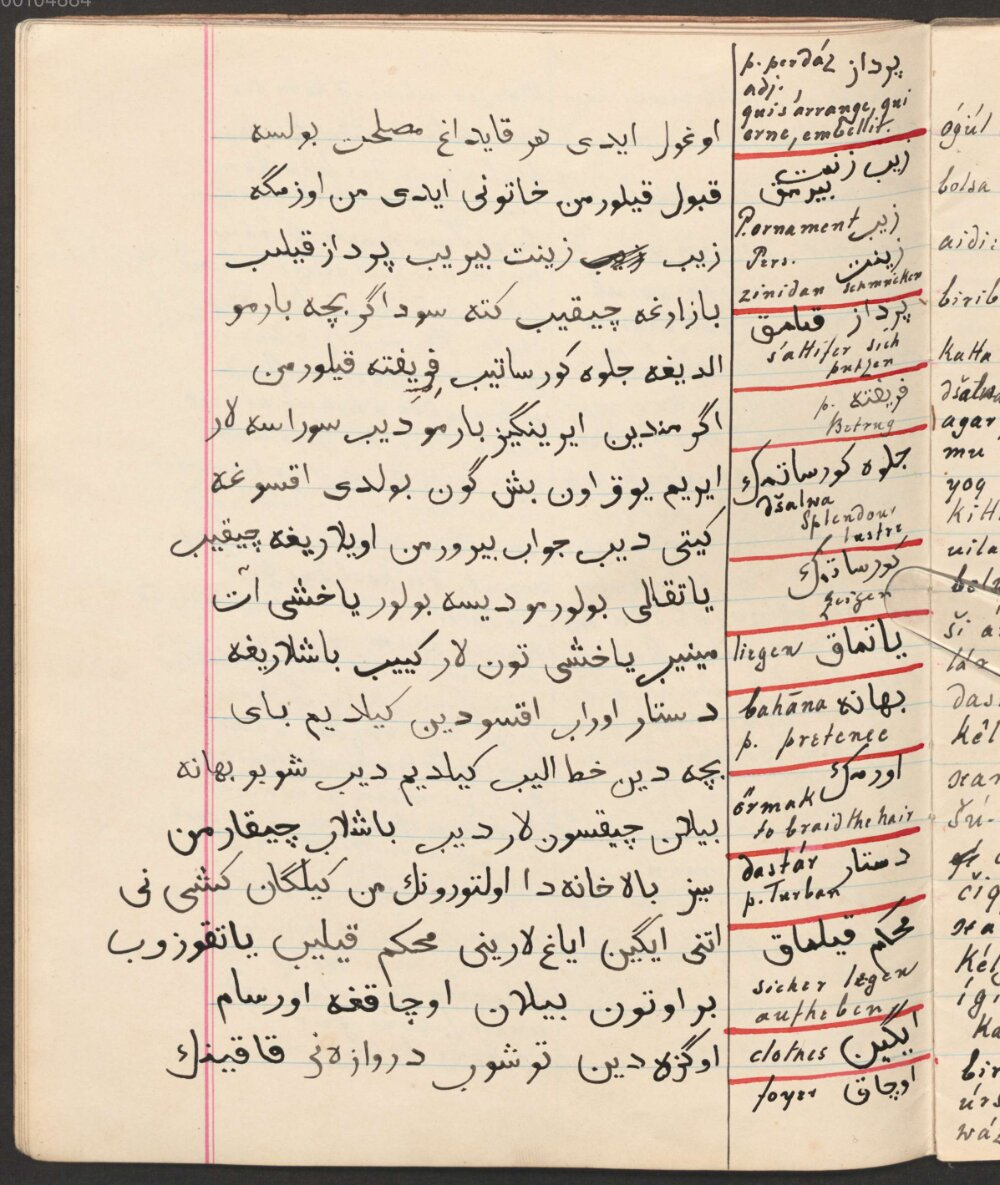 00104884
اوغول ایدی هر قایداغ مصلحت بولسه
قبول قیلورمن خاتونی ایادی من اوزمگه
زیب زینت بیریب پرداز قیلیب
بازارغه چیقیب کته سوداگر بچه بارمو
الدیغه جلوه کورساتیب فریفته قیلورمن
اگر مندین ایرینگیز بارمو دیب سوراسه لار
ایریم یوق اون بش گون بولدی اقسوغه
کیتی دیب جواب بیرورمن اویلاریغه چیقیب
یاتقالی بولورمو دیسه بولور یاخشی آت
مینیب یاخشی تون لار کییب باشلاریغه
دستار اوراب اقسودین کیلادیم بای
بچه دین خط الیب کیلدیم دیب شوبو بهانه
بیلان چیقسون لار دیب باشلاب چیقارمن
سیز بالاخانه دا اولتورونك من کیلگان کشی نی
اتنی ایگین ایاغ لارینی محکم قیلیب یاتقوزوب
بر اوتون بیلان اوچاقغه اورسام
اوگزه دین توشوب دروازه نی قاقینك
پرداز p. perdáz
adj.
qui s'arrange, qui
orne, embellit.
زیب زینت
بیرمق
زیب P. ornament
زینت Pers.
zinidan schmücken
پرداز قیلمق
s'attifer sich
putzen
فریفته p.
Betrug
جلوه کورساتمك
džalwa
Splendour
lustre
کورساتمك
zeigen
یاتماق liegen
بهانه bahāna
p. pretence
اورمك
örmak
to braid the hair
دستار dastár
p. Turban
محکم قیلماق
sicher legen
aufheben
ایگین clothes
اوچاق foyer
óġúl
bolsa
birib
katta
agar
mu
yoq